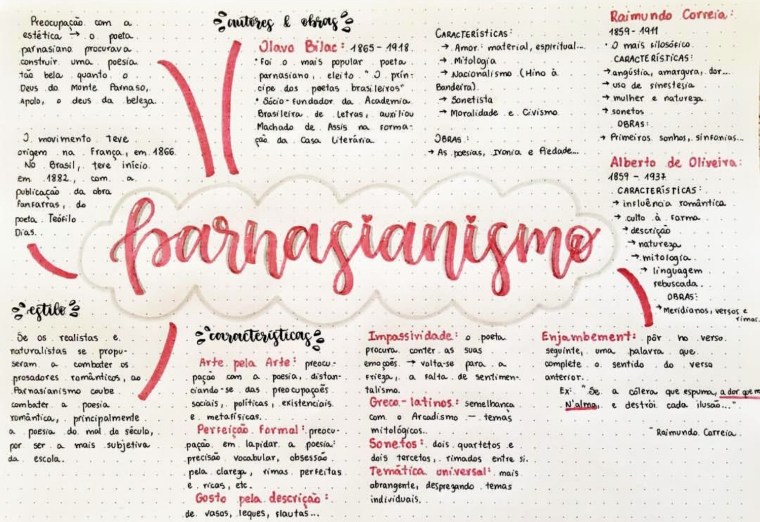 Preocupação com a
estética → o poeta
parnasiano procurava
construir uma poesia
tão bela quanto o
Deus do Monte Parnaso,
Apolo, o deus da beleza.
O movimento teve
origem na França, em 1866.
No Brasil, teve início
em 1882, com a
publicação da obra
Fanfarras, do
poeta Teófilo
Dias.
autores & obras
Olavo Bilac: 1865-1918
• Foi o mais popular poeta
parnasiano, eleito "O prín-
cipe dos poetas brasileiros"
• Sócio-fundador da Academia
Brasileira de Letras, auxiliou
Machado de Assis na forma-
ção da Casa Literária.
CARACTERÍSTICAS:
→ Amor: material, espiritual...
→ Mitologia
→ Nacionalismo (Hino à
Bandeira)
→ Sonetista
→ Moralidade e Civismo
OBRAS:
→ As poesias, Ironia e Piedade...
Raimundo Correia:
1859-1911
• O mais filosófico.
CARACTERÍSTICAS:
→ angústia, amargura, dor...
→ uso de sinestesia
→ mulher e natureza
→ sonetos
OBRAS:
→ Primeiros sonhos, sinfonias...
Alberto de Oliveira:
1859 - 1937
CARACTERÍSTICAS:
→ influência romântica
→ culto à forma
→ descrição
→ natureza
→ mitologia
→ linguagem
rebuscada.
OBRAS:
→ Meridianos, versos e
rimas
parnasianismo
estilo
Se os realistas e
naturalistas se propu-
seram a combater os
prosadores românticos, ao
Parnasianismo coube
combater a poesia
romântica, principalmente
a poesia do mal do século,
por ser a mais subjetiva
da escola.
características
Arte pela Arte: preocu-
pação com a poesia, distan-
ciando-se das preocupações
sociais, políticas, existenciais
e metafísicas.
Perfeição Formal: preocu-
pação em lapidar a poesia:
precisão vocabular, obsessão
pela clareza, rimas perfeitas
e ricas, etc.
Gosto pela descrição:
de vasos, leques, flautas...
Impassividade: o poeta
procura conter as suas
emoções → volta-se para a
frieza, a falta de sentimen-
talismo.
Greco-latinos: semelhança
com o Arcadismo - temas
mitológicos.
Sonetos: dois quartetos e
dois tercetos, rimados entre si.
Temática universal: mais
abrangente, desprezando temas
individuais.
Enjambement: pôr no verso
seguinte, uma palavra que
complete o sentido do verso
anterior.
Ex: "Se a cólera que espuma, a dor que m
N'alma, e destrói cada ilusão..."
"Raimundo Correia.